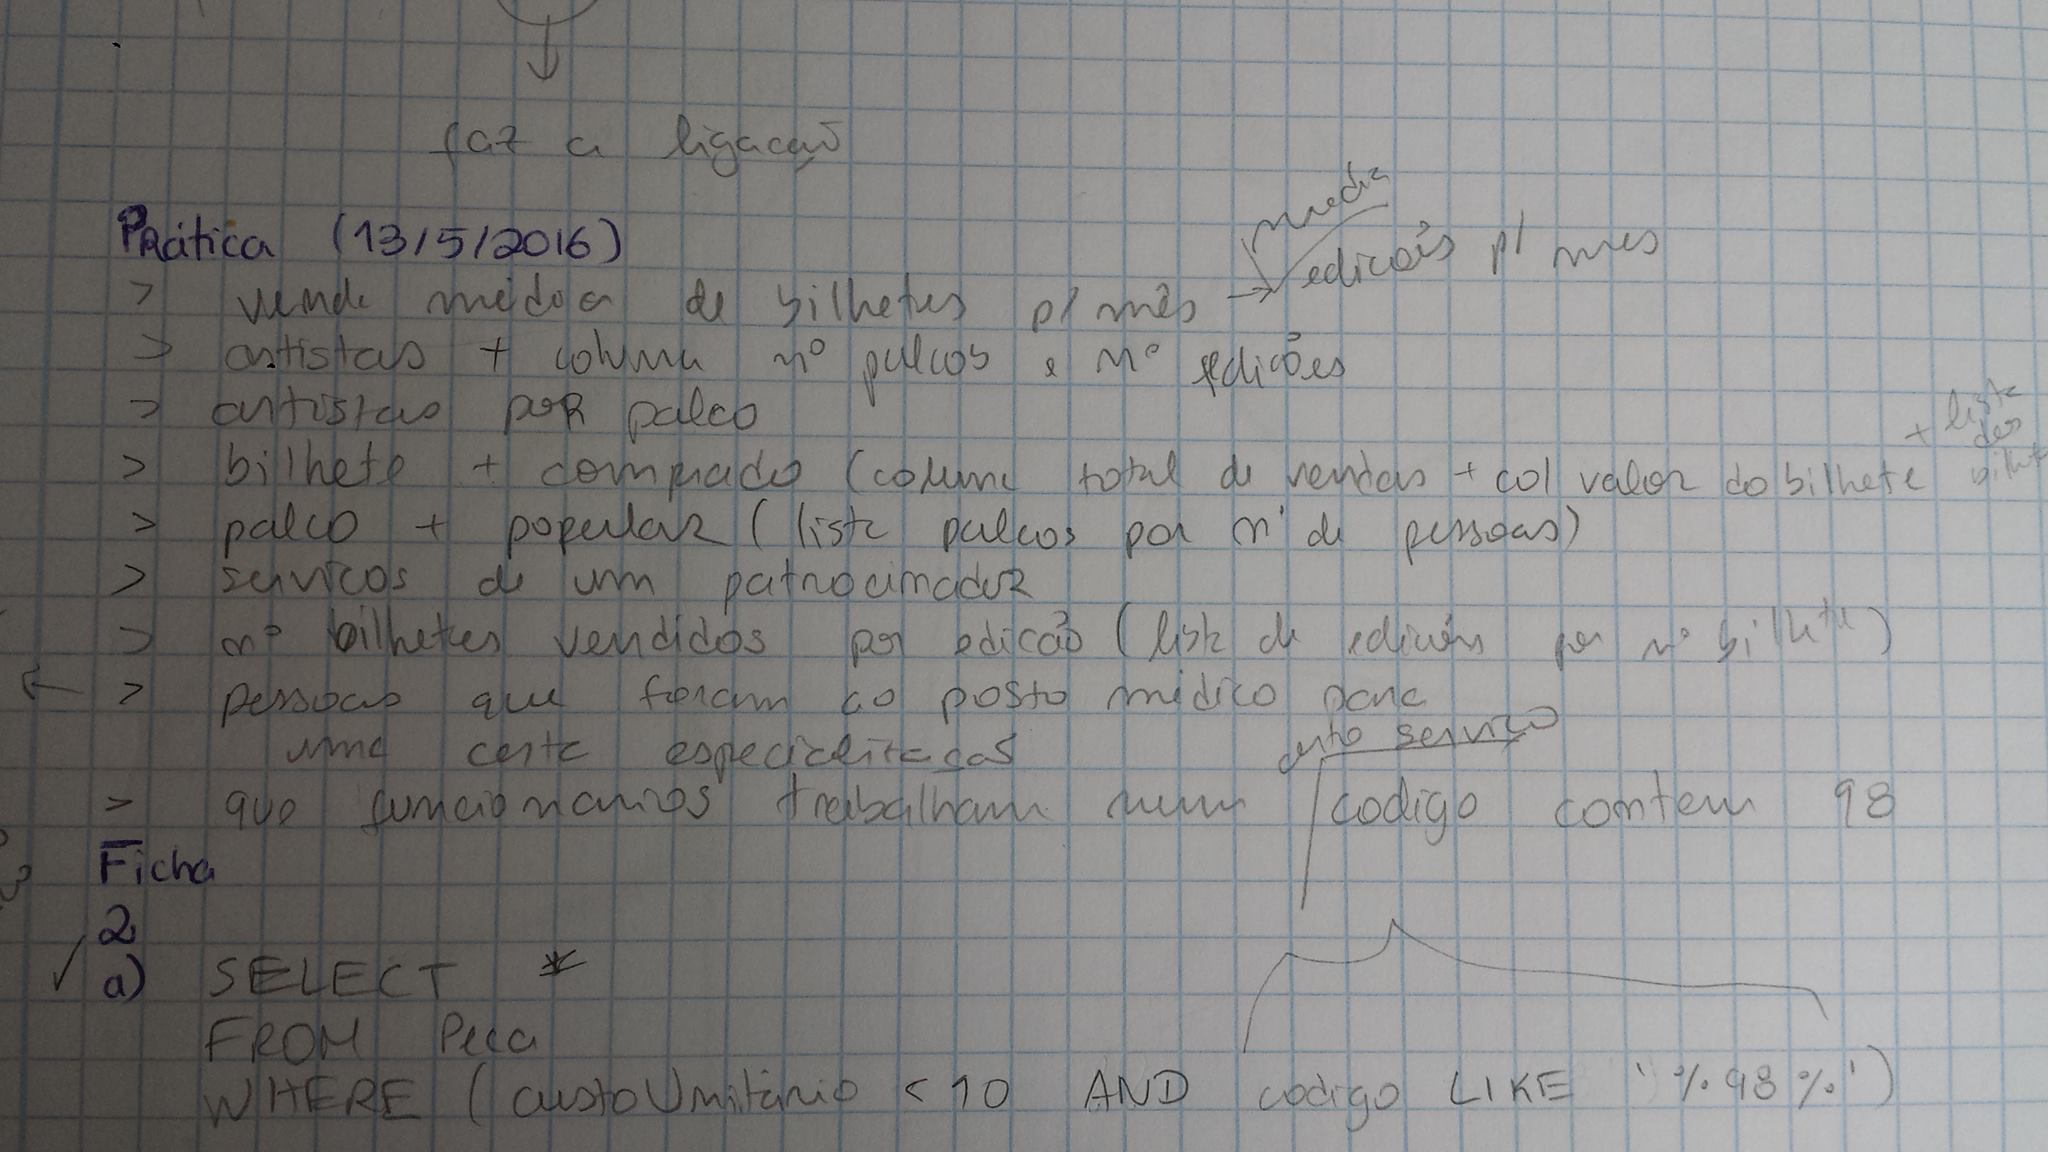 faz a ligação
Prática (13/5/2016)
media
> venda média de bilhetes p/ mês → edições p/ mes
> artistas + coluna nº palcos e nº edições
> artistas por palco
+ lista dos bilhetes
> bilhete + comprado (coluna total de vendas + col valor do bilhete
> palco + popular (lista palcos por nº de pessoas)
> serviços de um patrocinador
> nº bilhetes vendidos por edição (lista de edições por nº bilhete)
> pessoas que foram ao posto médico para
uma certa especialização
certo serviço
> que funcionarios trabalham num codigo contem 98
Ficha
2
a) SELECT *
FROM Peca
WHERE (custoUnitário < 10 AND codigo LIKE '%98%')